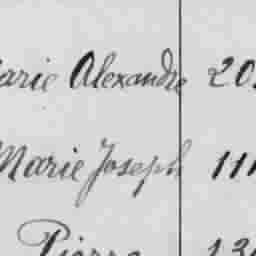 arie Alexandre 20
Marie Joseph 111
Pierre 13